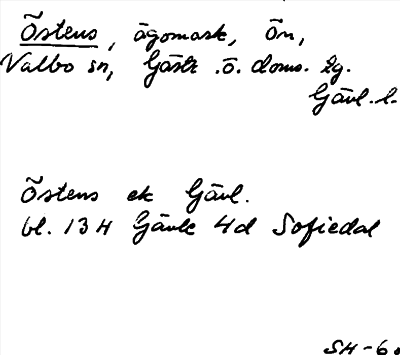 Östens, ägomark, Ön,
Valbo sn, Gästr. ö. doms. tg.
Gävl. l.
Östens ek Gävl.
bl. 13 H Gävle 4d Sofiedal
SH-6